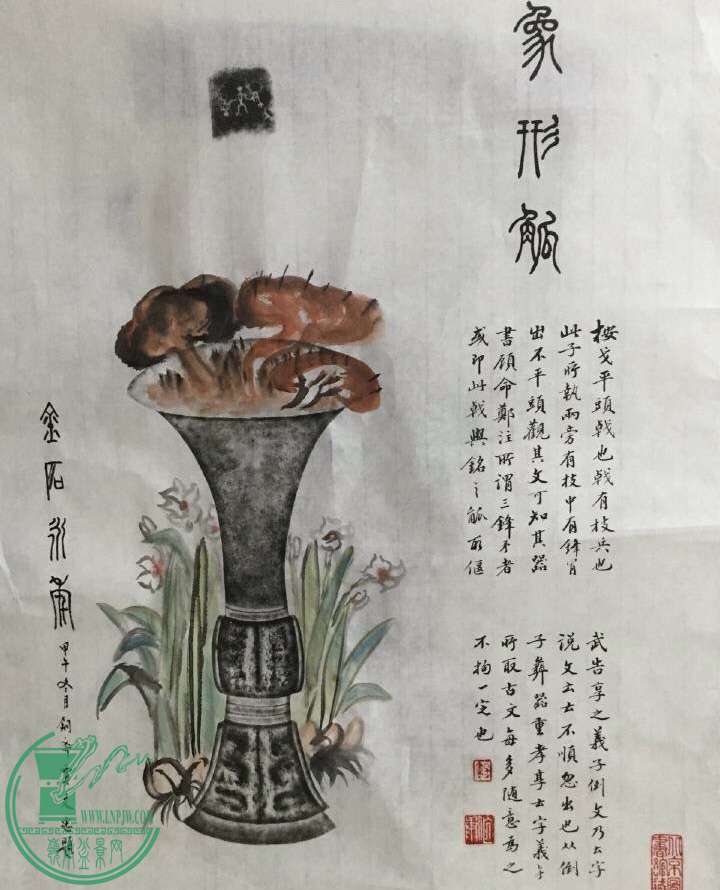 象形觚
桉戈平頭戟也戟有枝兵也
此子所執兩旁有枝中有鋒
出不平頭觀其文可知其器
書顧命鄭注所謂三鋒矛者
或即此戟與銘之觚取偃
武告享之義子倒文乃𠫓字
説文云𠫓不順忽出也从倒
子彝器重孝享𠫓字義
所取古文每多随意為之
不拘一定也
金石永壽
甲午冬月
題
WWW.LNPJW.COM
盆景网